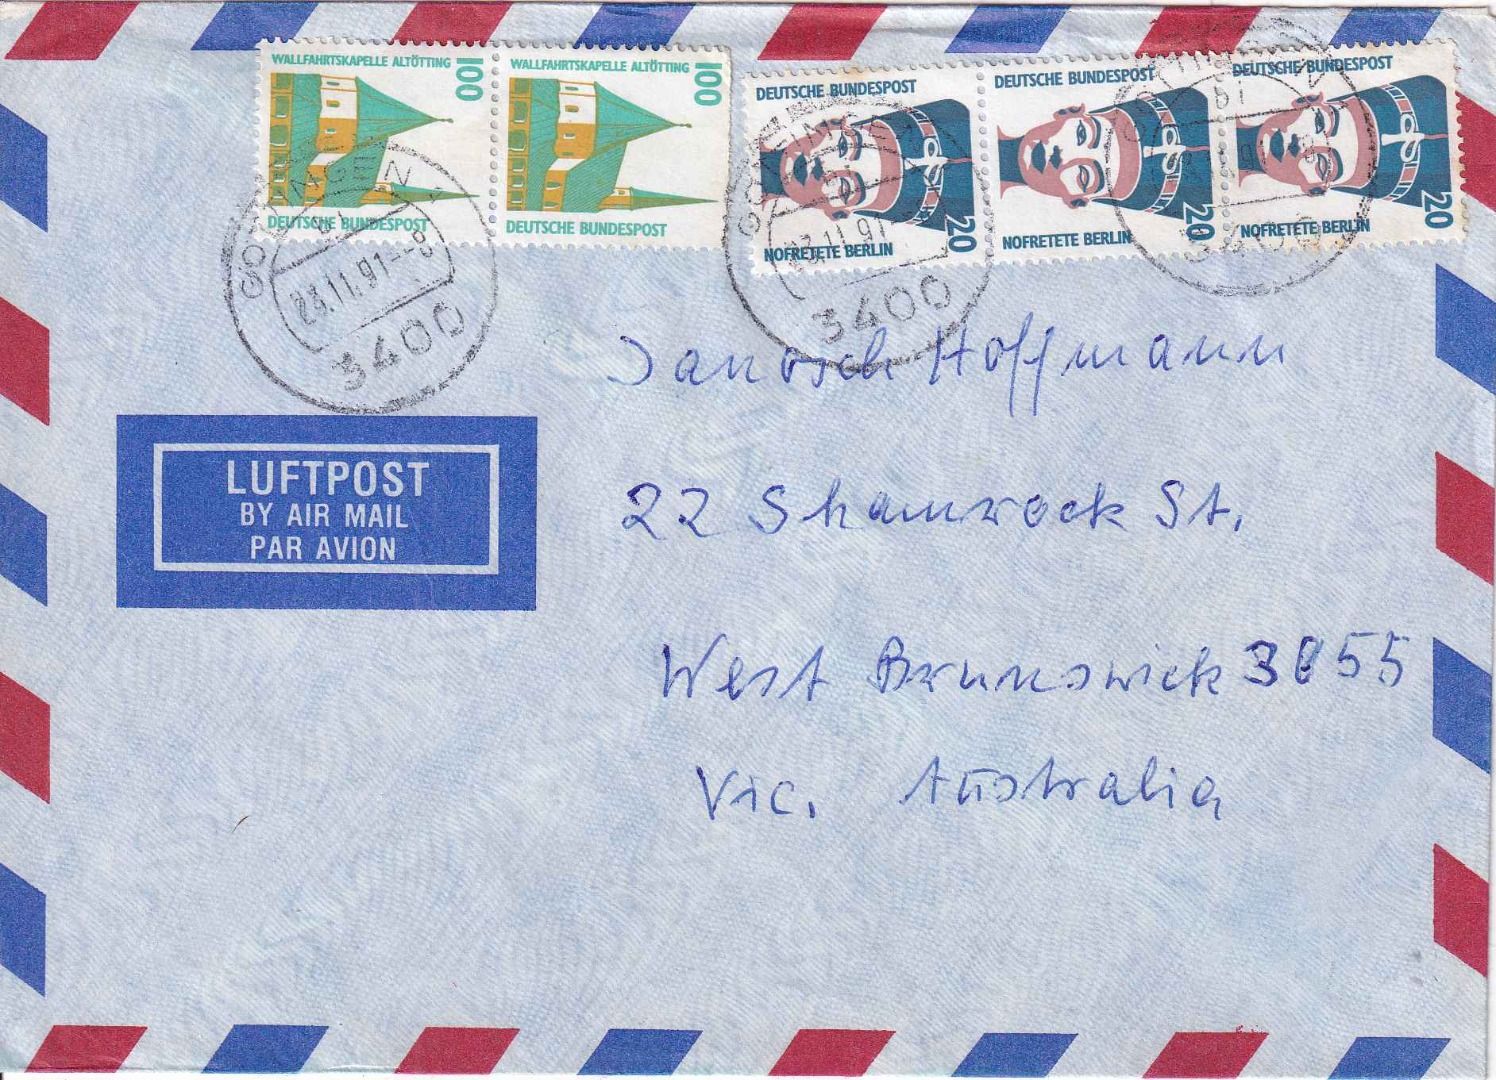 WALLFAHRTSKAPELLE ALTÖTTING 100
DEUTSCHE BUNDESPOST
WALLFAHRTSKAPELLE ALTÖTTING 100
DEUTSCHE BUNDESPOST
DEUTSCHE BUNDESPOST
20
NOFRETETE BERLIN
DEUTSCHE BUNDESPOST
20
NOFRETETE BERLIN
DEUTSCHE BUNDESPOST
20
NOFRETETE BERLIN
23.11.91--8
3400
23.11.91
3400
Janosch Hoffmann
LUFTPOST
BY AIR MAIL
PAR AVION
22 Shamrock St.
West Brunswick 3055
Vic. Australia